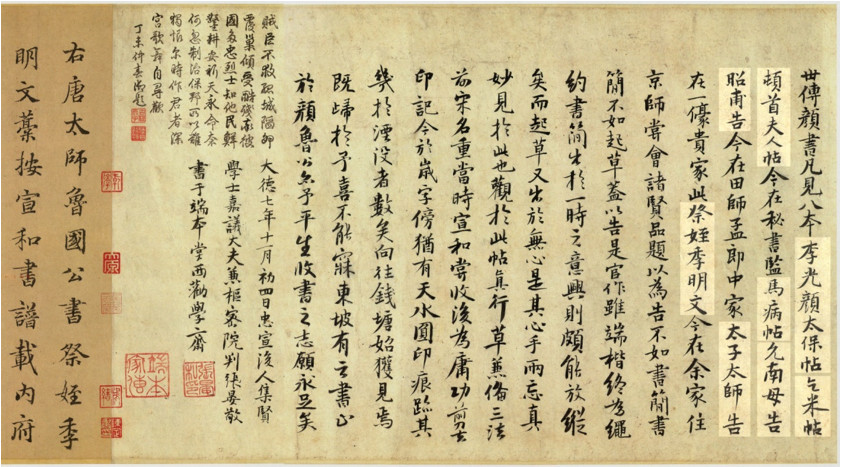 世傳顏書凡見八本李光顏太保帖乞米帖
頓首夫人帖今在秘書監馬病帖允南母告
昭甫告今在田師孟郎中家太子太師告
在一豪貴家此祭姪季明文今在余家住
京師嘗會諸賢品題以為告不如書簡書
簡不如起草蓋以告是官作雖端楷終為繩
約書簡出於一時之意興則頗能放縱
矣而起草又出於無心是其心手兩忘真
妙見於此也觀於此帖真行草兼備三法
前宋名重當時宣和嘗收後為庸功剪去
印記今於歲字傍猶有天水圓印痕跡其
幾於湮沒者數矣向往錢塘始獲見焉
既歸於予喜不能寐東坡有云書止
於顏魯公予平生收書之志願永足矣
大德七年十一月初四日忠宣後人集賢
學士嘉議大夫兼樞密院判張晏敬
書于端本堂西勸學齋
賊臣不救孤城卵
覆巢傾受酷殘彼
國多忠烈士知他民鮮
耕安祈天永命奈
何忽制治保邦所以難
獨恨爾時作君者深
宮歌舞自尋歡
丁未仲春御題
右唐太師魯國公書祭姪季
明文藁按宣和書譜載內府